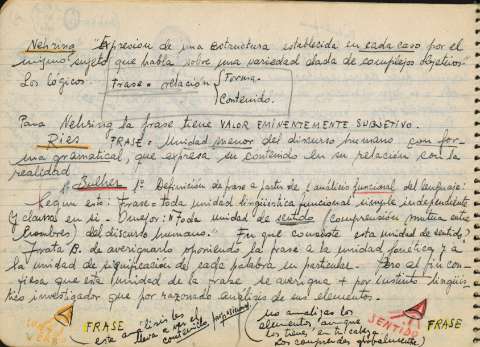 Nehring "Expresión de una estructura establecida en cada caso por el
mismo sujeto que habla sobre una variedad dada de complejos objetivos"
Los lógicos. Frase = relación { Forma.
Contenido.
Para Nehring la frase tiene VALOR EMINENTEMENTE SUBJETIVO.
Ries FRASE = Unidad menor del discurso humano con for-
ma gramatical, que expresa su contenido en su relación con la
realidad.
Bulher 1º Definición de frase a partir de / análisis funcional del lenguaje:
Según esto: Frase = toda unidad lingüística funcional simple independiente
y clausa en sí. O mejor: "toda unidad de sentido (comprensión mutua entre
hombres) del discurso humano." En qué consiste esta unidad de sentido?
Trata B. de averiguarlo oponiendo la frase a la unidad fonética y a
la unidad de significación de cada palabra en particular. Pero al fin con-
fiesa que esta unidad de la frase se averigua + por instinto lingüis-
tico investigador que por razonado análisis de sus elementos.
FRASE
este análisis les
lleva a ver el
contenido
no analizas los
elementos aunque
los tienes en tu cabeza
los comprendes globalmente
SENTIDO FRASE